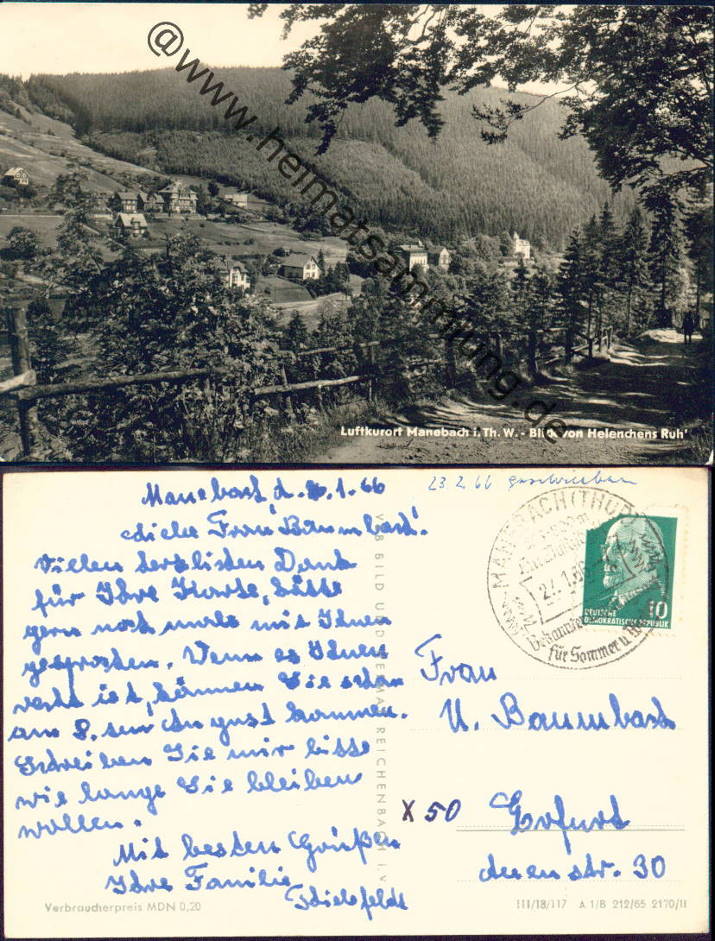 @www.heimatsammlung.de
Luftkurort Manebach i. Th. W. - Blick von Helenchens Ruh'
Manebach, d. 1.66
23 2. 66 geschrieben
Liebe Frau Baumbach!
Vielen herzlichen Dank
für Ihre Karte, hätte
gern noch mals mit Ihnen
gesprochen. Wenn es Ihnen
recht ist, können Sie schon
am 8. August kommen.
Schreiben Sie mir bitte
wie lange Sie bleiben
wollen.
Mit besten Grüßen
Ihre Familie
Thielefeldt
Verbraucherpreis MDN 0,20
VEB BILD UND HEIMAT REICHENBACH I. V.
MANEBACH (THÜR)
27.1.66
Bekannte
für Sommer u.
10
DEUTSCHE
DEMOKRATISCHE REPUBLIK
Frau
U. Baumbach
X 50 Erfurt
str. 30
III/18/117 A 1/B 212/65 2170/II